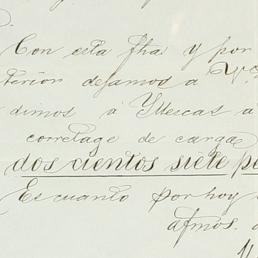 Con esta fha: y por
terior dejamos a
dimos á Yllescas á
corretage de carga
dos cientos siete pe
Es cuanto por hoy
afmos.